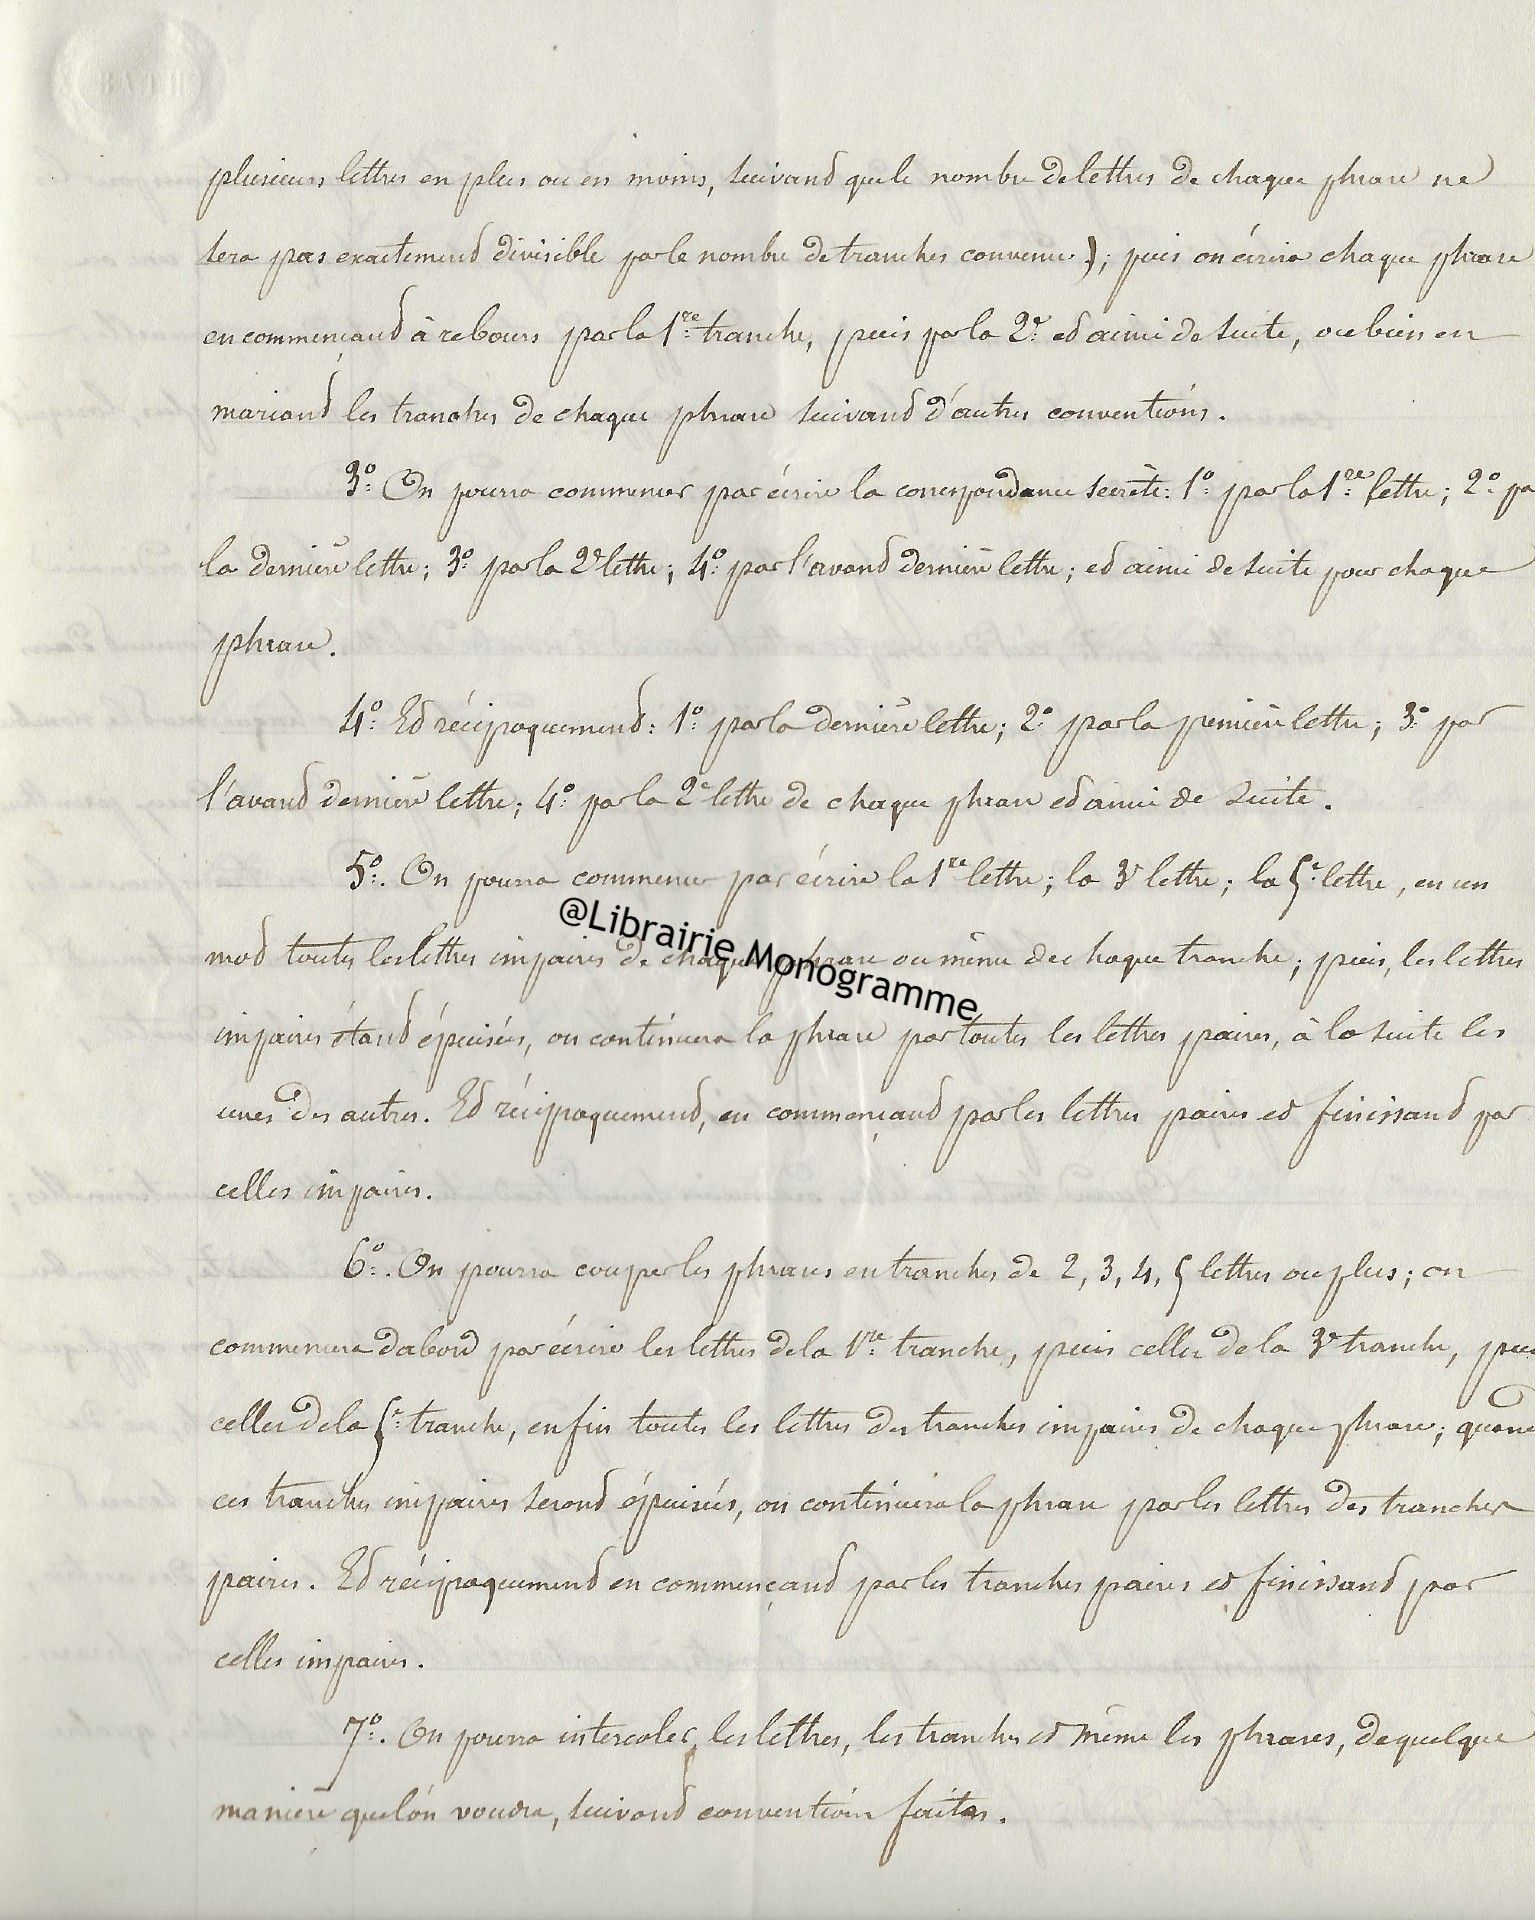 plusieurs lettres en plus ou en moins, suivant que le nombre de lettres de chaque phrase ne
sera pas exactement divisible par le nombre de tranches convenu); puis on écrira chaque phrase
en commençant à rebours par la 1re tranche, puis par la 2e et ainsi de suite, ou bien en
mariant les tranches de chaque phrase suivant d'autres conventions.
3o. On pourra commencer par écrire la correspondance secrète: 1o. par la 1re lettre; 2o. pa
la dernière lettre; 3o. par la 2e lettre; 4o. par l'avant dernière lettre; et ainsi de suite pour chaque
phrase.
4o. Et réciproquement: 1o. par la dernière lettre; 2o. par la première lettre; 3o. par
l'avant dernière lettre; 4o. par la 2e lettre de chaque phrase et ainsi de suite.
5o. On pourra commencer par écrire la 1re lettre; la 3e lettre; la 5e lettre, en un
mot toutes les lettres impaires de chaque phrase ou même de chaque tranche; puis, les lettres
@Librairie Monogramme
impaires étant épuisées, on continuera la phrase par toutes les lettres paires, à la suite les
unes des autres. Et réciproquement, en commençant par les lettres paires et finissant par
celles impaires.
6o. On pourra couper les phrases en tranches de 2, 3, 4, 5 lettres ou plus; on
commencera d'abord par écrire les lettres de la 1re tranche, puis celles de la 3e tranche, puis
celles de la 5e tranche, enfin toutes les lettres des tranches impaires de chaque phrase; quand
ces tranches impaires seront épuisées, on continuera la phrase par les lettres des tranches
paires. Et réciproquement en commençant par les tranches paires et finissant par
celles impaires.
7o. On pourra intercaler les lettres, les tranches et même les phrases, de quelque
manière que l'on voudra, suivant convention faites.